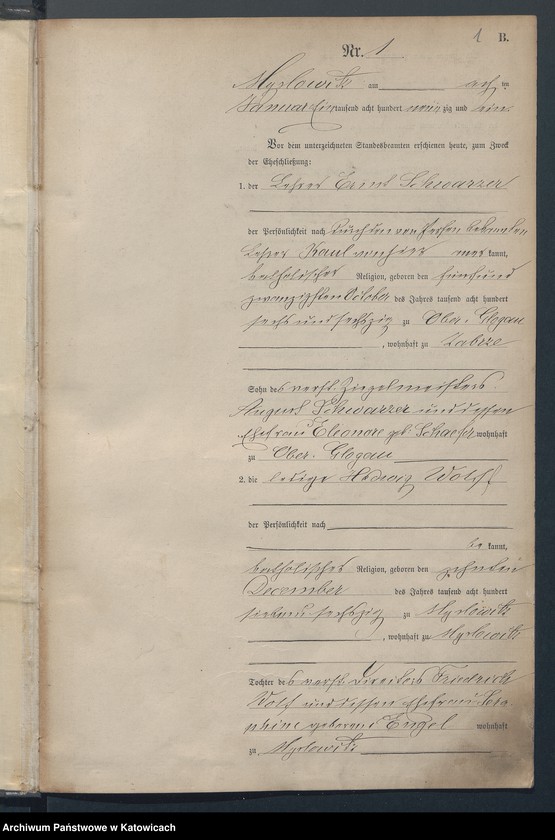 1 B.
Nr. 1
Myslowitz am acht en
Januar Ein tausend acht hundert neun zig und ein
Vor dem unterzeichneten Standesbeamten erschienen heute, zum Zweck
der Eheschließung:
1. der Lehrer Ernst Schwarzer
der Persönlichkeit nach durch den von Person bekannten
Lehrer Paul von hier kannt,
katholischer Religion, geboren den fünfund
zwanzigsten October des Jahres tausend acht hundert
sechs und sechszig zu Ober-Glogau
, wohnhaft zu Zabrze
Sohn des verst. Ziegelmeisters
August Schwarzer und dessen
Ehefrau Eleonore geb. wohnhaft
zu Ober-Glogau
2. die ledige Hedwig Wolff
der Persönlichkeit nach
be kannt,
katholischer Religion, geboren den zehnten
December des Jahres tausend acht hundert
sieben sechszig zu Myslowitz
, wohnhaft zu Myslowitz
Tochter des verst. Direktors Friedrich
Wolff und dessen Ehefrau Jose
phine geborene Engel wohnhaft
zu Myslowitz
Archiwum Państwowe w Katowicach